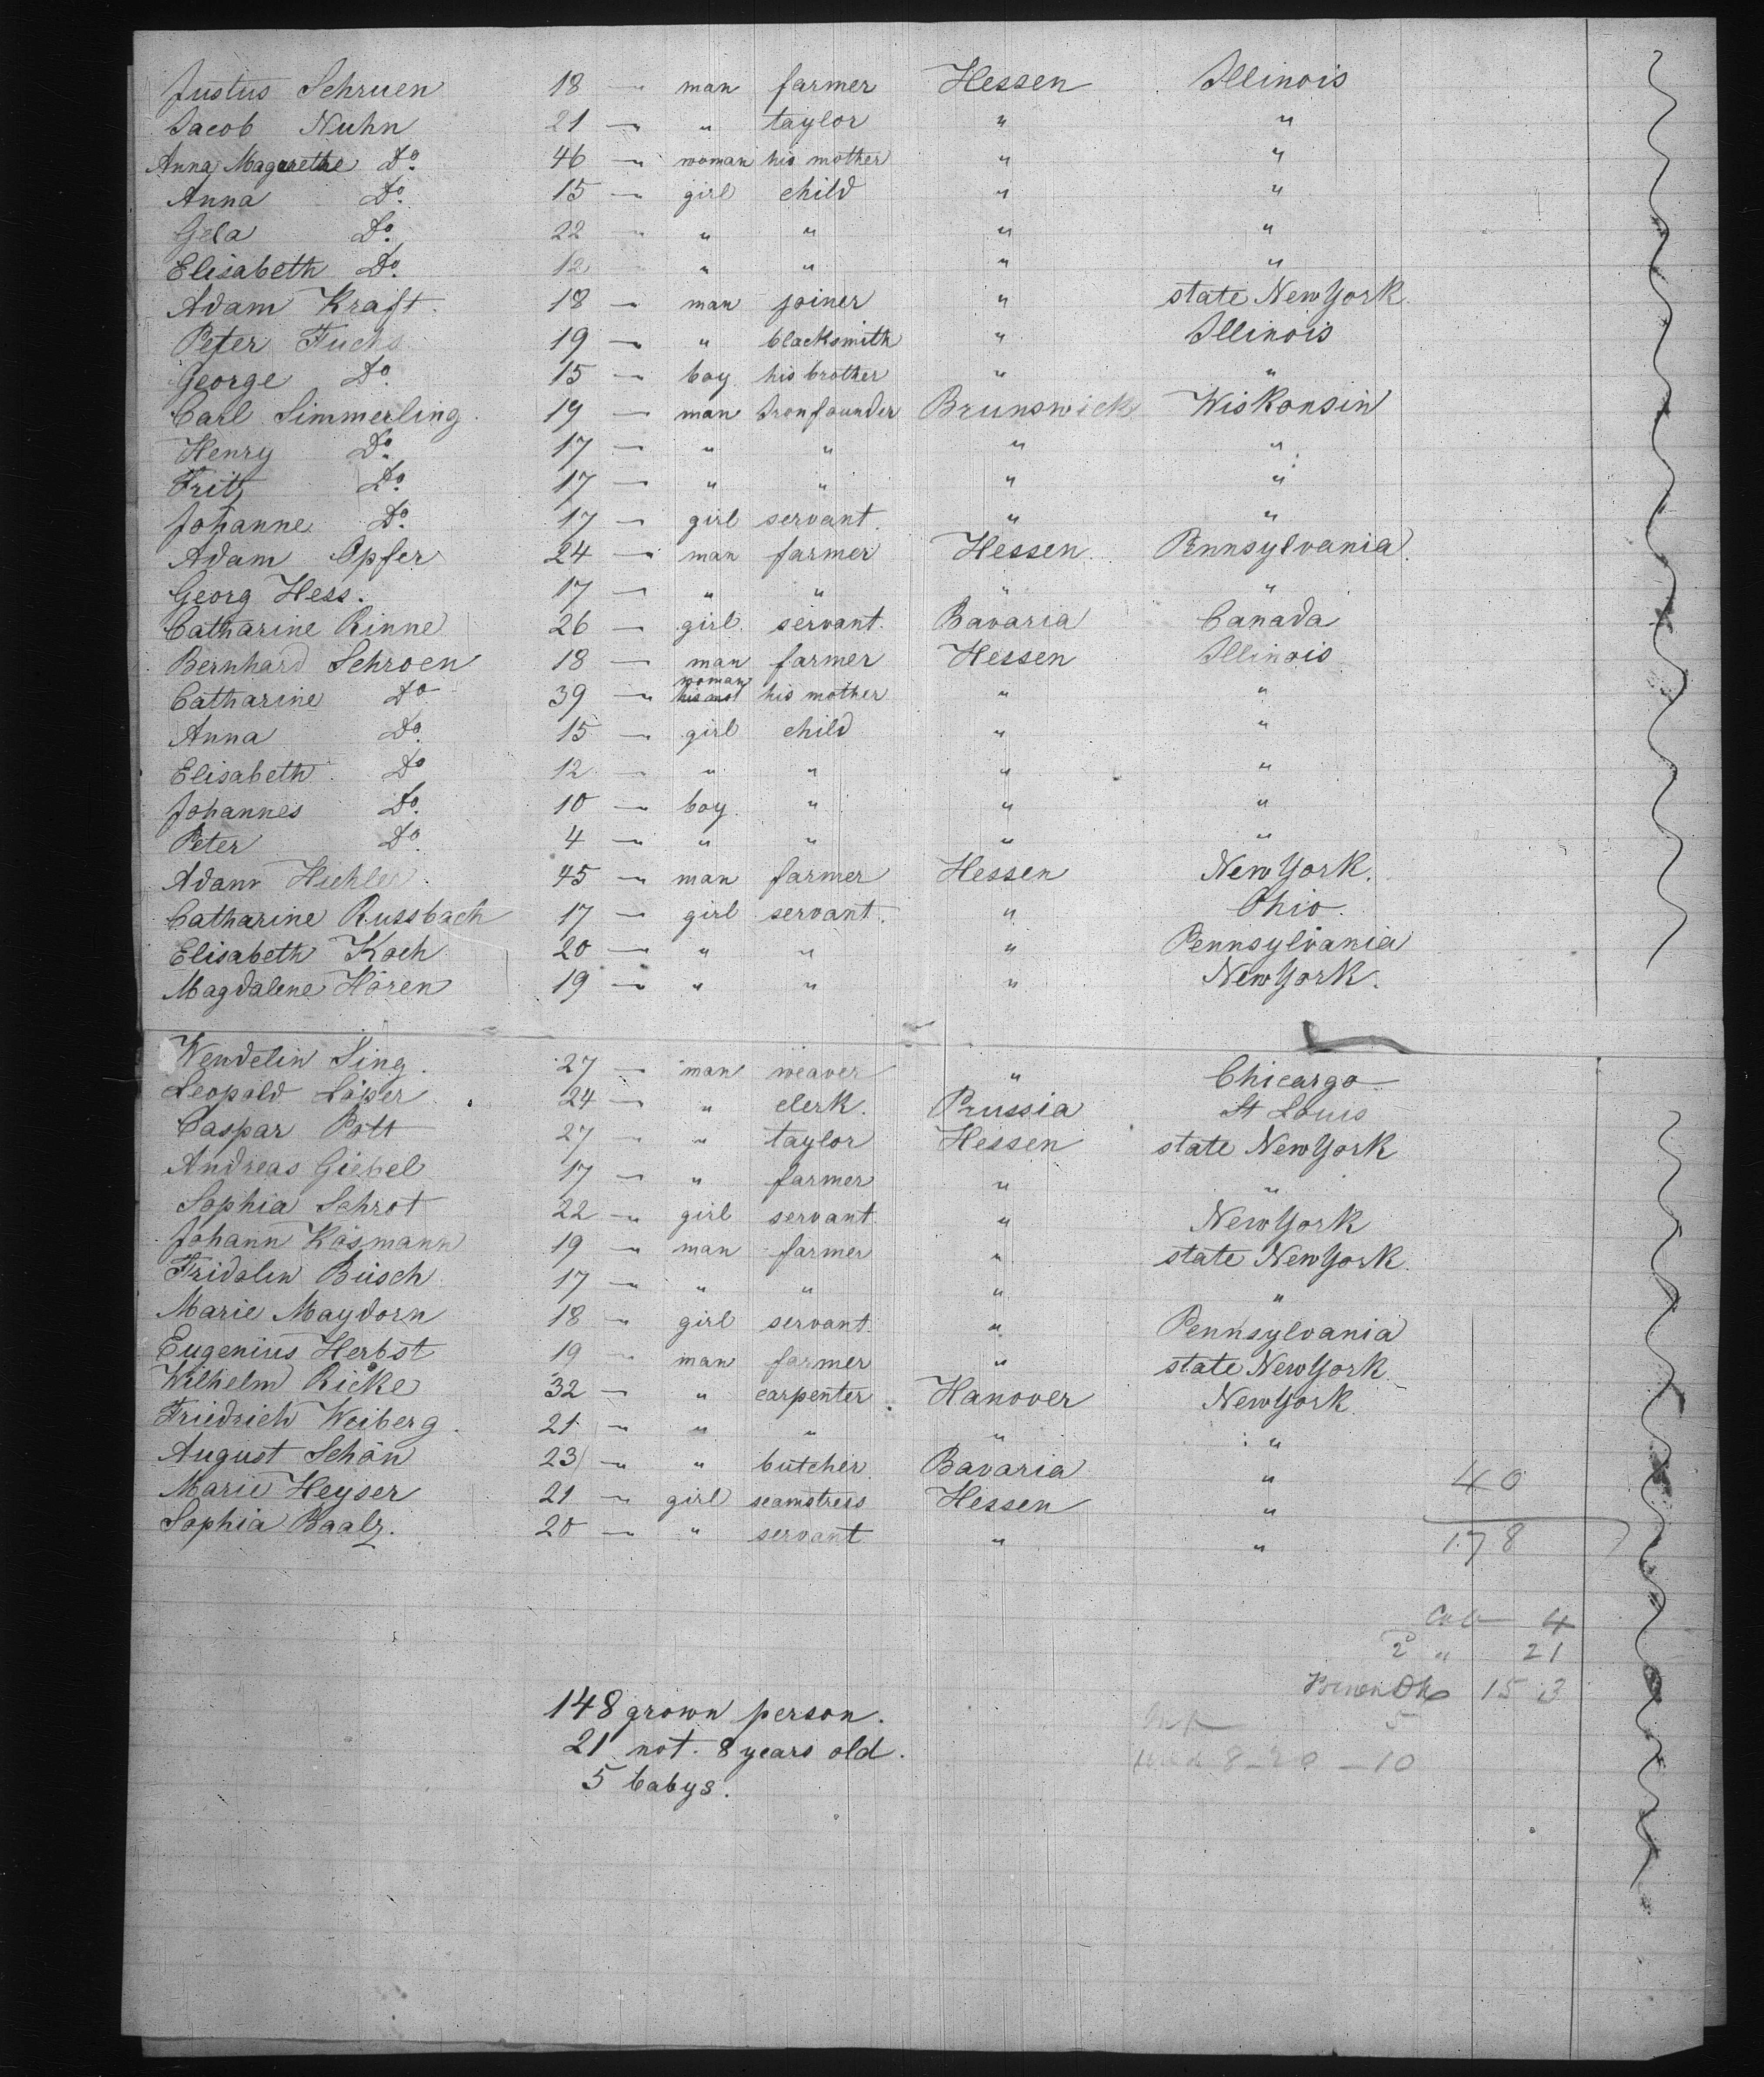 Justus Schruen 18 — man farmer Hessen Illinois
Jacob Nuhn 21 — " taylor " "
Anna Magarethe Do. 46 — woman his mother " "
Anna Do. 15 — girl child " "
Gela Do. 22 — " " " "
Elisabeth Do. 12 — " " " "
Adam Kraft. 18 — man joiner " state New York.
Peter Fuchs 19 — " blacksmith " Illinois
George Do. 15 — boy his brother " "
Carl Simmerling 19 — man Ironfounder Brunswick Wiskonsin
Henry Do. 17 — " " " "
Fritz Do. 17 — " " " "
Johanne Do. 17 — girl servant. " "
Adam Opfer 24 — man farmer Hessen Pennsylvania.
Georg Hess. 17 — " " " "
Catharine Rinne 26 — girl servant. Bavaria Canada
Bernhard Schroen 18 — man farmer Hessen Illinois
Catharine Do 39 — woman his mother " "
Anna Do. 15 — girl child " "
Elisabeth Do 12 — " " " "
Johannes Do. 10 — boy " " "
Peter Do. 4 — " " " "
Adam 45 — man farmer Hessen New York.
Catharine Russbach 17 — girl servant. " Ohio.
Elisabeth Koch 20 — " " " Pennsylvania
Magdalene Hören 19 — " " " New York.
Wendelin Sing. 27 — man weaver " Chicargo
Leopold Löper 24 — " clerk. Prussia St Louis
Caspar Pott 27 — " taylor Hessen state New York
Andreas Giebel 17 — " farmer " "
Sophia Schrot 22 — girl servant. " New York
Johann Kösmann 19 — man farmer " state New York.
Fridolin Büsch 17 — " " " "
Marie Maydorn 18 — girl servant. " Pennsylvania
Eugenius Herbst 19 — man farmer " state New York.
Wilhelm Ricke 32 — " carpenter. Hanover New York.
Friedrich Woiberg. 21 — " " " "
August Schön 23 — " butcher. Bavaria "
Marie Heyser 21 — girl seamstress Hessen " 40
Sophia Baalz. 20 — " servant " " 178
4
2 " 21
153
148 grown person. 5
21 not. 8 years old. 10
5 babys.